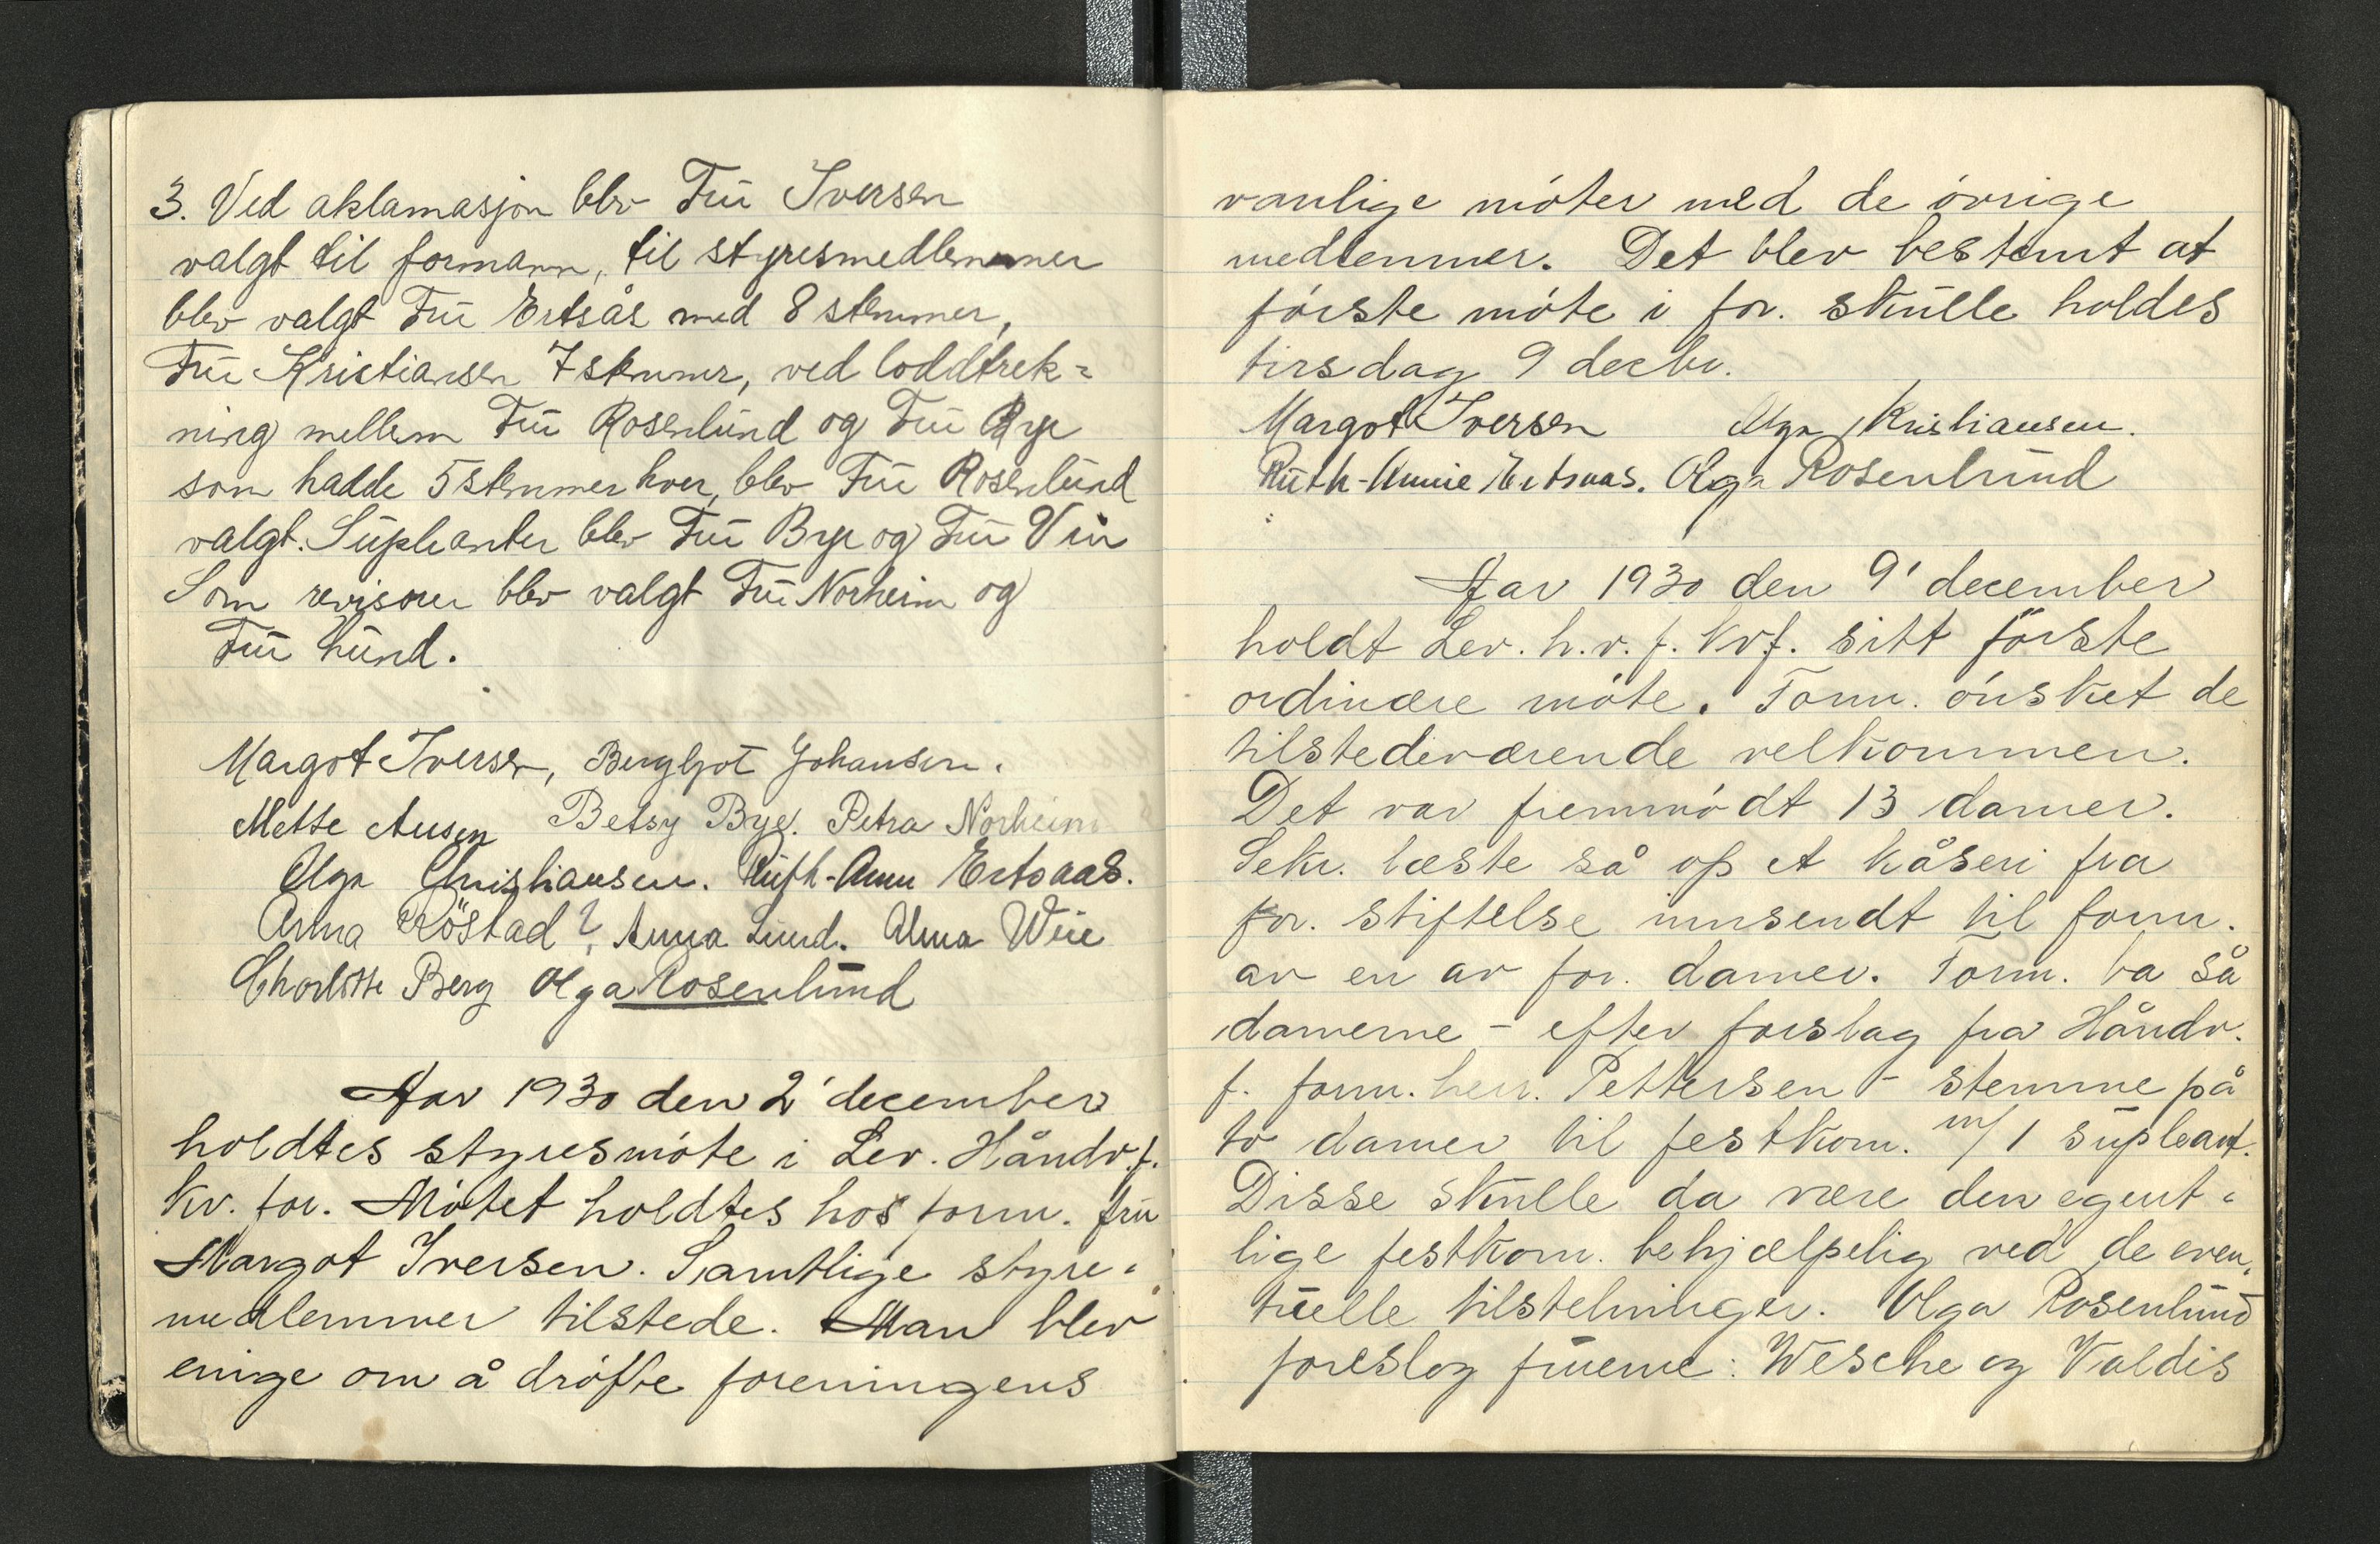 3. Ved aklamasjon blev Fru Iversen
valgt til formann, til styresmedlemmer
blev valgt Fru Ertsås med 8 stemmer,
Fru Kristiansen 7 stemmer, ved loddtrek-
ning mellem Fru Rosenlund og Fru Bye
som hadde 5 stemmer hver, blev Fru Rosenlund
valgt. Supleanter blev Fru Bye og Fru Vie
Som revisorer blev valgt Fru Norheim og
Fru Lund.
Margot Iversen, Bergljot Johansen.
Mette Ausen Betsy Bye. Petra Norheim
Olga Christiansen. Ruth-Ann Ertsaas.
Anna Röstad?, Anna Lund. Alma Wiie
Charlotte Berg Olga Rosenlund
Aar 1930 den 2' december
holdtes styresmöte i Lev. Håndv.f.
kv. for. Mötet holdtes hos form. fru
Margot Iversen. Samtlige styre-
medlemmer tilstede. Man blev
enige om å dröfte foreningens
vanlige möter med de övrige
medlemmer. Det blev bestemt at
förste möte i for. skulle holdes
tirsdag 9 decbr.
Margot Iversen Olga Kristiansen.
Ruth-Annie Ertsaas. Olga Rosenlund
Aar 1930 den 9' december
holdt Lev. h.v.f. kvf. sitt förste
ordinære möte. Form. önsket de
tilstedeværende velkommen.
Det var fremmödt 13 damer.
Sekr. læste så op et kåseri fra
for. stiftelse innsendt til form.
av en av for. damer. Form. ba så
damerne - efter forslag fra Håndv.
f. form. herr. Pettersen - stemme på
to damer til festkom. m/ 1 supleant.
Disse skulle da være den egent-
lige festkom. behjælpelig ved de even-
tuelle tilstelninger. Olga Rosenlund
foreslog fruerne: Wesche og Valdis